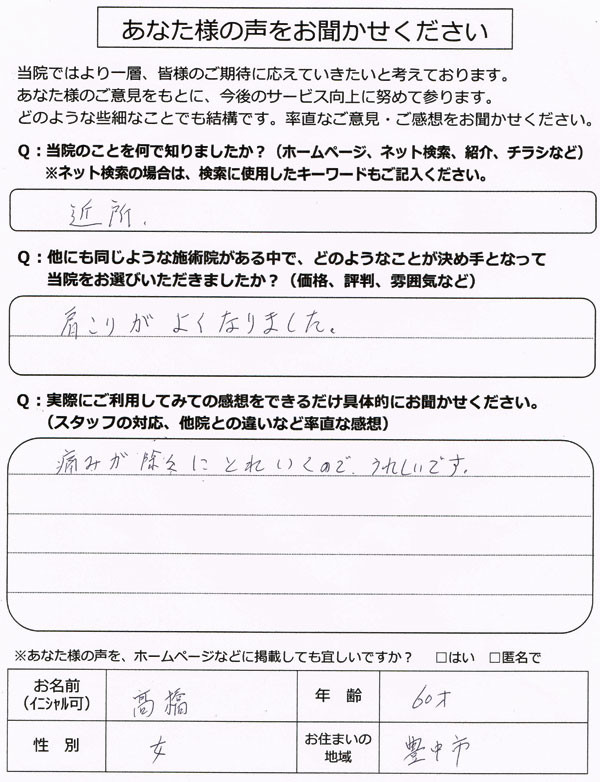 あなた様の声をお聞かせください
当院ではより一層、皆様のご期待に応えていきたいと考えております。
あなた様のご意見をもとに、今後のサービス向上に努めて参ります。
どのような些細なことでも結構です。率直なご意見・ご感想をお聞かせください。
Q：当院のことを何で知りましたか？（ホームページ、ネット検索、紹介、チラシなど）
※ネット検索の場合は、検索に使用したキーワードもご記入ください。
近所.
Q：他にも同じような施術院がある中で、どのようなことが決め手となって
当院をお選びいただきましたか？（価格、評判、雰囲気など）
肩こりがよくなりました。
Q：実際にご利用してみての感想をできるだけ具体的にお聞かせください。
（スタッフの対応、他院との違いなど率直な感想）
痛みが除々にとれいくので、うれしいです。
※あなた様の声を、ホームページなどに掲載しても宜しいですか？　□はい　□匿名で
お名前（イニシャル可） 高橋 年　齢 60才
性　別 女 お住まいの地域 豊中市